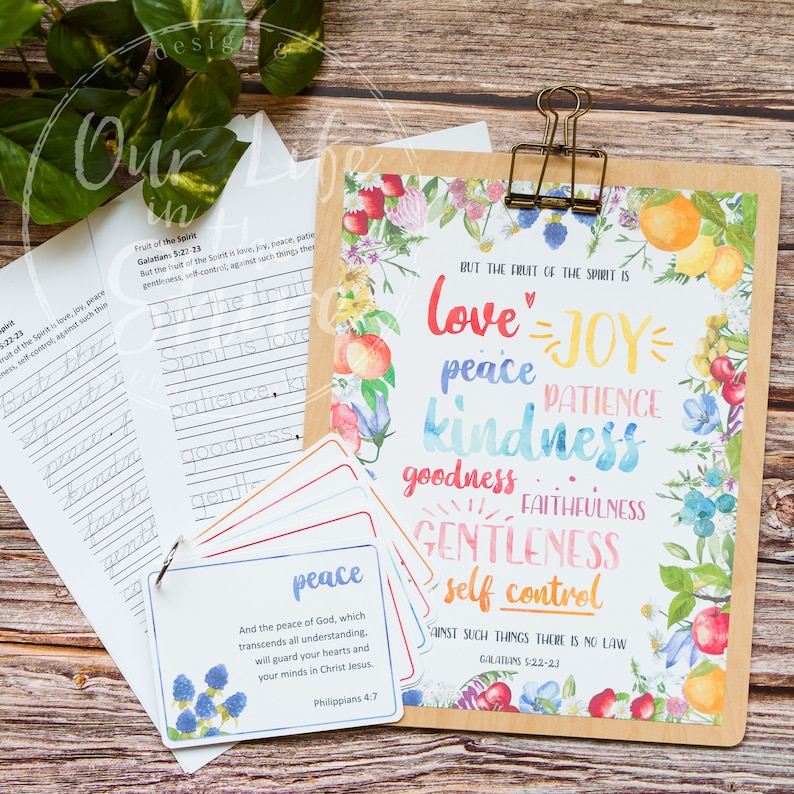 design &
Our Life
in the
Fruit of the Spirit
Galatians 5:22-23
But the fruit of the Spirit is love, joy, peace, patie
gentleness, self-control; against such things ther
But the fruit
Spirit is love
patience, ki
goodness,
gentle
Spirit
22-23
fruit of the Spirit is love, joy, peace
, self-control; against such thin
But the
kindne
faithfu
gentl
BUT THE FRUIT OF THE SPIRIT IS
love
JOY
peace
PATIENCE
kindness
goodness
FAITHFULNESS
GENTLENESS
self control
AINST SUCH THINGS THERE IS NO LAW
GALATIANS 5:22-23
peace
And the peace of God, which
transcends all understanding,
will guard your hearts and
your minds in Christ Jesus.
Philippians 4:7